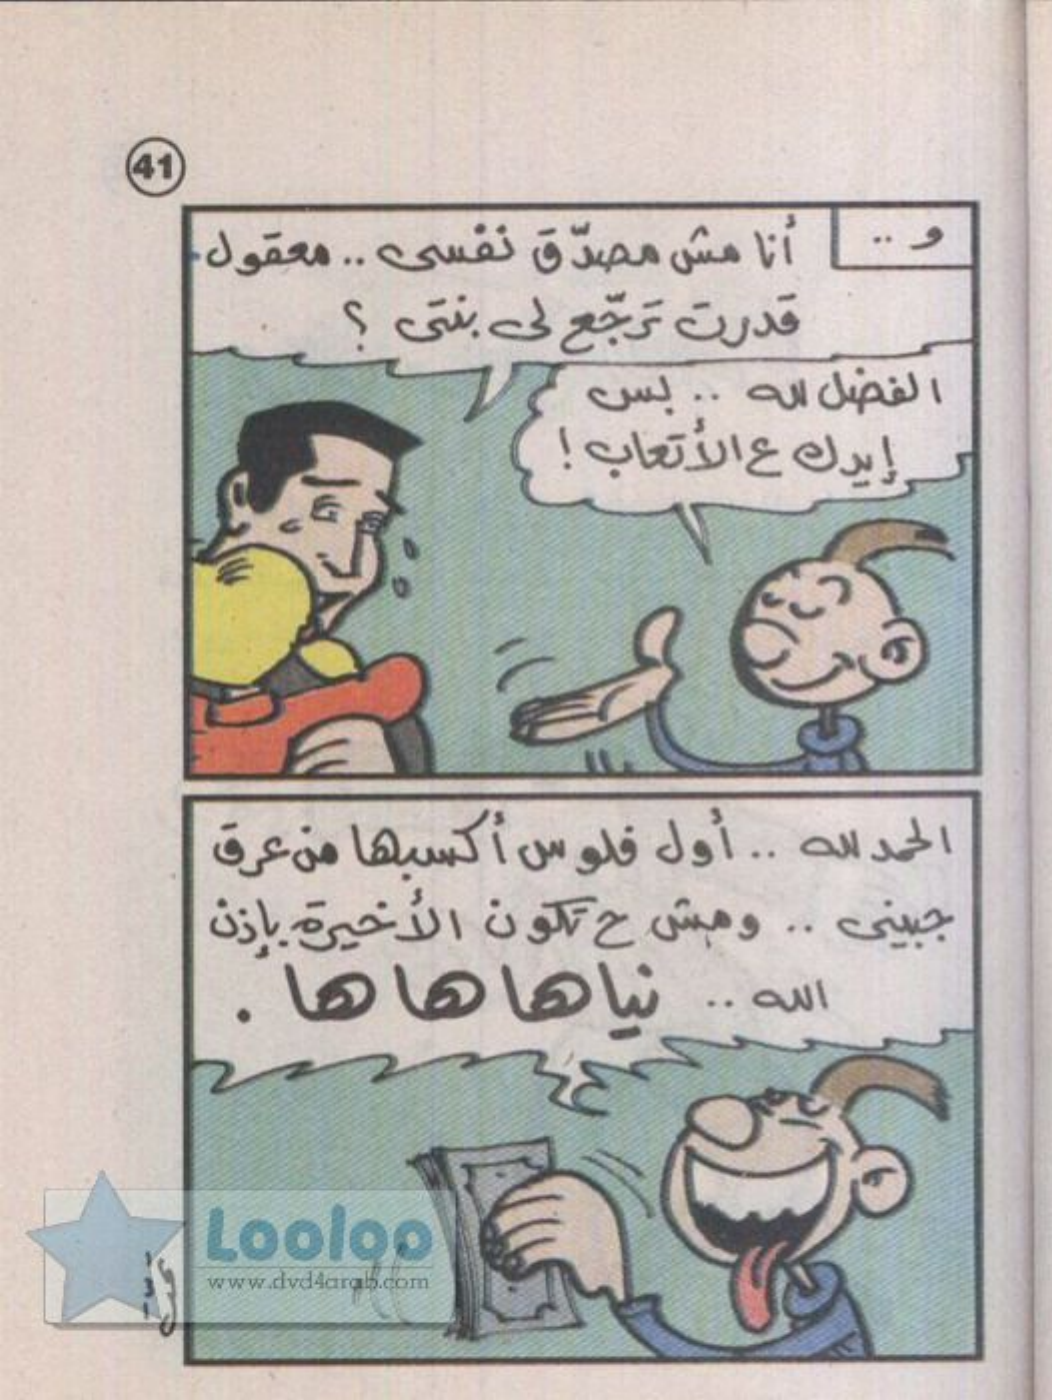 41
و ..
أنا مش مصدّق نفسى .. معقول
قدرت ترجّع لى بنتى ؟
الفضل لله .. بس
إيدك ع الأتعاب !
الحمد لله .. أول فلوس أكسبها من عرق
جبينى .. ومش ح تكون الأخيرة بإذن
الله .. نياها ها ها .
Looloo
www.dvd4arab.com